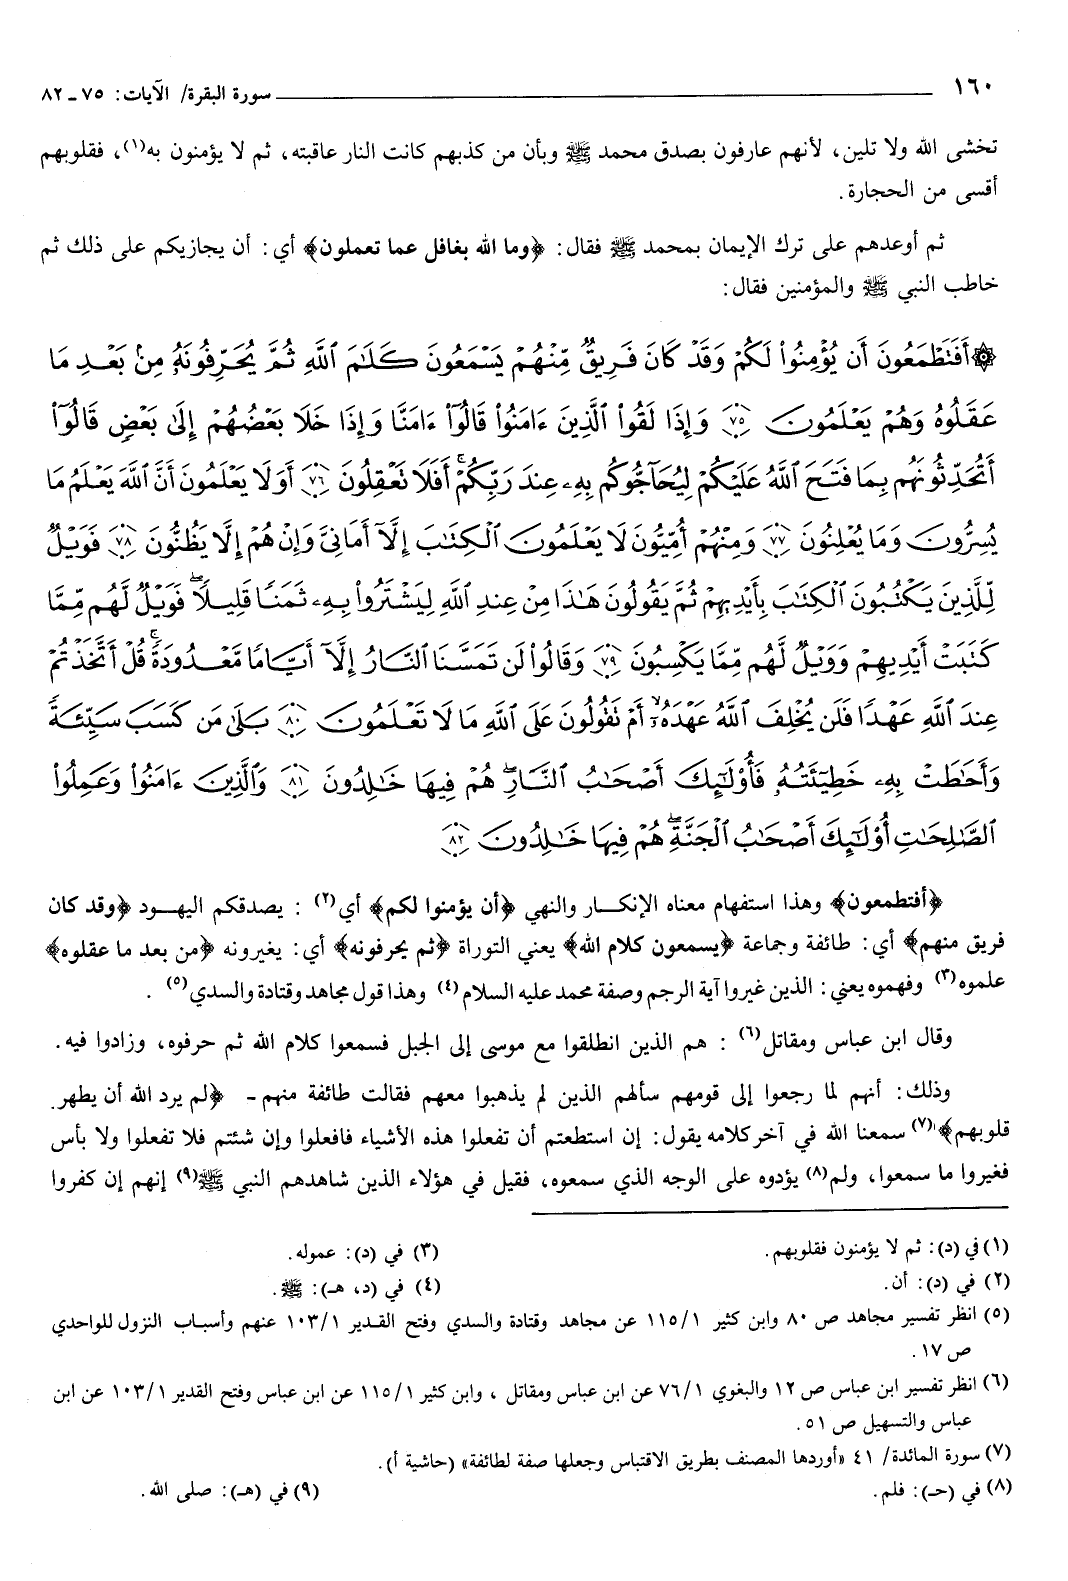 ١٦٠ سورة البقرة/ الآيات: ٧٥ - ٨٢
تخشى الله ولا تلين، لأنهم عارفون بصدق محمد ﷺ وبأن من كذبهم كانت النار عاقبته، ثم لا يؤمنون به(١)، فقلوبهم
أقسى من الحجارة.
ثم أوعدهم على ترك الإيمان بمحمد ﷺ فقال: ﴿وما الله بغافل عما تعملون﴾ أي: أن يجازيكم على ذلك ثم
خاطب النبي ﷺ والمؤمنين فقال:
۞ أَفَتَطْمَعُونَ أَن يُؤْمِنُوا۟ لَكُمْ وَقَدْ كَانَ فَرِيقٌ مِّنْهُمْ يَسْمَعُونَ كَلَـٰمَ ٱللَّهِ ثُمَّ يُحَرِّفُونَهُۥ مِنۢ بَعْدِ مَا
عَقَلُوهُ وَهُمْ يَعْلَمُونَ ﴿٧٥﴾ وَإِذَا لَقُوا۟ ٱلَّذِينَ ءَامَنُوا۟ قَالُوٓا۟ ءَامَنَّا وَإِذَا خَلَا بَعْضُهُمْ إِلَىٰ بَعْضٍ قَالُوٓا۟
أَتُحَدِّثُونَهُم بِمَا فَتَحَ ٱللَّهُ عَلَيْكُمْ لِيُحَآجُّوكُم بِهِۦ عِندَ رَبِّكُمْ ۚ أَفَلَا تَعْقِلُونَ ﴿٧٦﴾ أَوَلَا يَعْلَمُونَ أَنَّ ٱللَّهَ يَعْلَمُ مَا
يُسِرُّونَ وَمَا يُعْلِنُونَ ﴿٧٧﴾ وَمِنْهُمْ أُمِّيُّونَ لَا يَعْلَمُونَ ٱلْكِتَـٰبَ إِلَّآ أَمَانِىَّ وَإِنْ هُمْ إِلَّا يَظُنُّونَ ﴿٧٨﴾ فَوَيْلٌ
لِّلَّذِينَ يَكْتُبُونَ ٱلْكِتَـٰبَ بِأَيْدِيهِمْ ثُمَّ يَقُولُونَ هَـٰذَا مِنْ عِندِ ٱللَّهِ لِيَشْتَرُوا۟ بِهِۦ ثَمَنًا قَلِيلًا ۖ فَوَيْلٌ لَّهُم مِّمَّا
كَتَبَتْ أَيْدِيهِمْ وَوَيْلٌ لَّهُم مِّمَّا يَكْسِبُونَ ﴿٧٩﴾ وَقَالُوا۟ لَن تَمَسَّنَا ٱلنَّارُ إِلَّآ أَيَّامًا مَّعْدُودَةً ۚ قُلْ أَتَّخَذْتُمْ
عِندَ ٱللَّهِ عَهْدًا فَلَن يُخْلِفَ ٱللَّهُ عَهْدَهُۥٓ ۖ أَمْ تَقُولُونَ عَلَى ٱللَّهِ مَا لَا تَعْلَمُونَ ﴿٨٠﴾ بَلَىٰ مَن كَسَبَ سَيِّئَةً
وَأَحَـٰطَتْ بِهِۦ خَطِيٓـَٔتُهُۥ فَأُو۟لَـٰٓئِكَ أَصْحَـٰبُ ٱلنَّارِ ۖ هُمْ فِيهَا خَـٰلِدُونَ ﴿٨١﴾ وَٱلَّذِينَ ءَامَنُوا۟ وَعَمِلُوا۟
ٱلصَّـٰلِحَـٰتِ أُو۟لَـٰٓئِكَ أَصْحَـٰبُ ٱلْجَنَّةِ ۖ هُمْ فِيهَا خَـٰلِدُونَ ﴿٨٢﴾
﴿أفتطمعون﴾ وهذا استفهام معناه الإنكار والنهي ﴿أن يؤمنوا لكم﴾ أي(٢) : يصدقكم اليهود ﴿وقد كان
فريق منهم﴾ أي: طائفة وجماعة ﴿يسمعون كلام الله﴾ يعني التوراة ﴿ثم يحرفونه﴾ أي: يغيرونه ﴿من بعد ما عقلوه﴾
علموه(٣) وفهموه يعني: الذين غيروا آية الرجم وصفة محمد عليه السلام(٤) وهذا قول مجاهد وقتادة والسدي(٥) .
وقال ابن عباس ومقاتل(٦) : هم الذين انطلقوا مع موسى إلى الجبل فسمعوا كلام الله ثم حرفوه، وزادوا فيه.
وذلك: أنهم لما رجعوا إلى قومهم سألهم الذين لم يذهبوا معهم فقالت طائفة منهم - ﴿لم يرد الله أن يطهر
قلوبهم﴾(٧) سمعنا الله في آخر كلامه يقول: إن استطعتم أن تفعلوا هذه الأشياء فافعلوا وإن شئتم فلا تفعلوا ولا بأس
فغيروا ما سمعوا، ولم(٨) يؤدوه على الوجه الذي سمعوه، فقيل في هؤلاء الذين شاهدهم النبي ﷺ(٩) إنهم إن كفروا
(١) في (د): ثم لا يؤمنون فقلوبهم. (٣) في (د): عموله.
(٢) في (د): أن. (٤) في (د، هـ): ﷺ.
(٥) انظر تفسير مجاهد ص ٨٠ وابن كثير ١/١١٥ عن مجاهد وقتادة والسدي وفتح القدير ١/١٠٣ عنهم وأسباب النزول للواحدي
ص ١٧.
(٦) انظر تفسير ابن عباس ص ١٢ والبغوي ١/٧٦ عن ابن عباس ومقاتل ، وابن كثير ١/١١٥ عن ابن عباس وفتح القدير ١/١٠٣ عن ابن
عباس والتسهيل ص ٥١.
(٧) سورة المائدة/ ٤١ «أوردها المصنف بطريق الاقتباس وجعلها صفة لطائفة» (حاشية أ).
(٨) في (حـ): فلم. (٩) في (هـ): صلى الله.